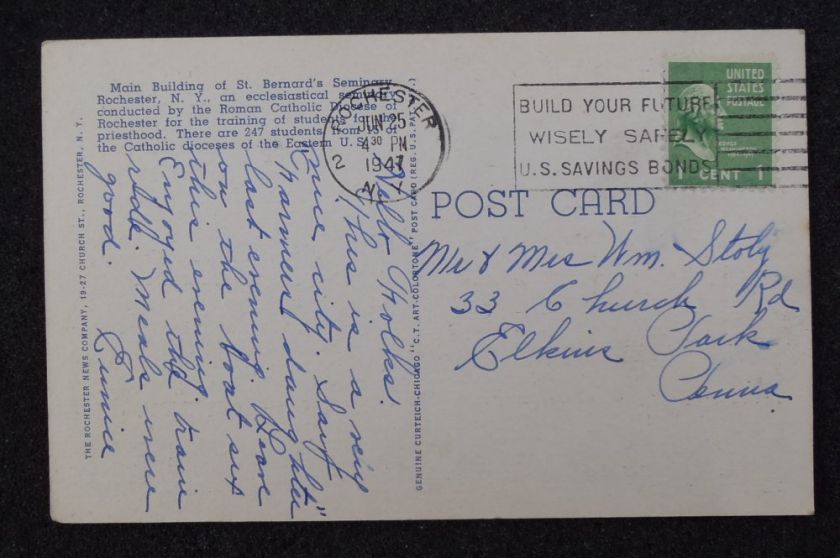 Main Building of St. Bernard's Seminary,
Rochester, N. Y., an ecclesiastical seminary
conducted by the Roman Catholic Diocese of
Rochester for the training of students for the
priesthood. There are 247 students from of
the Catholic dioceses of the Eastern U. S.
ROCHESTER
2
JUN 25
4 30 PM
1947
N.Y.
BUILD YOUR FUTURE
WISELY SAFELY
U.S. SAVINGS BONDS
UNITED
STATES
POSTAGE
1 CENT 1
POST CARD
Mr & Mrs Wm. Stoly
33 Church Rd
Elkins Park
Penna
Hello Folks!
This is a very
nice city. Saw
"Farmers daughter"
last evening. Leave
on the boat six
this evening.
Enjoyed the train
ride. Meals were
good.
Eunice
THE ROCHESTER NEWS COMPANY, 19-27 CHURCH ST., ROCHESTER, N. Y.
GENUINE CURTEICH-CHICAGO "C.T. ART-COLORTONE" POST CARD (REG. U.S. PAT.